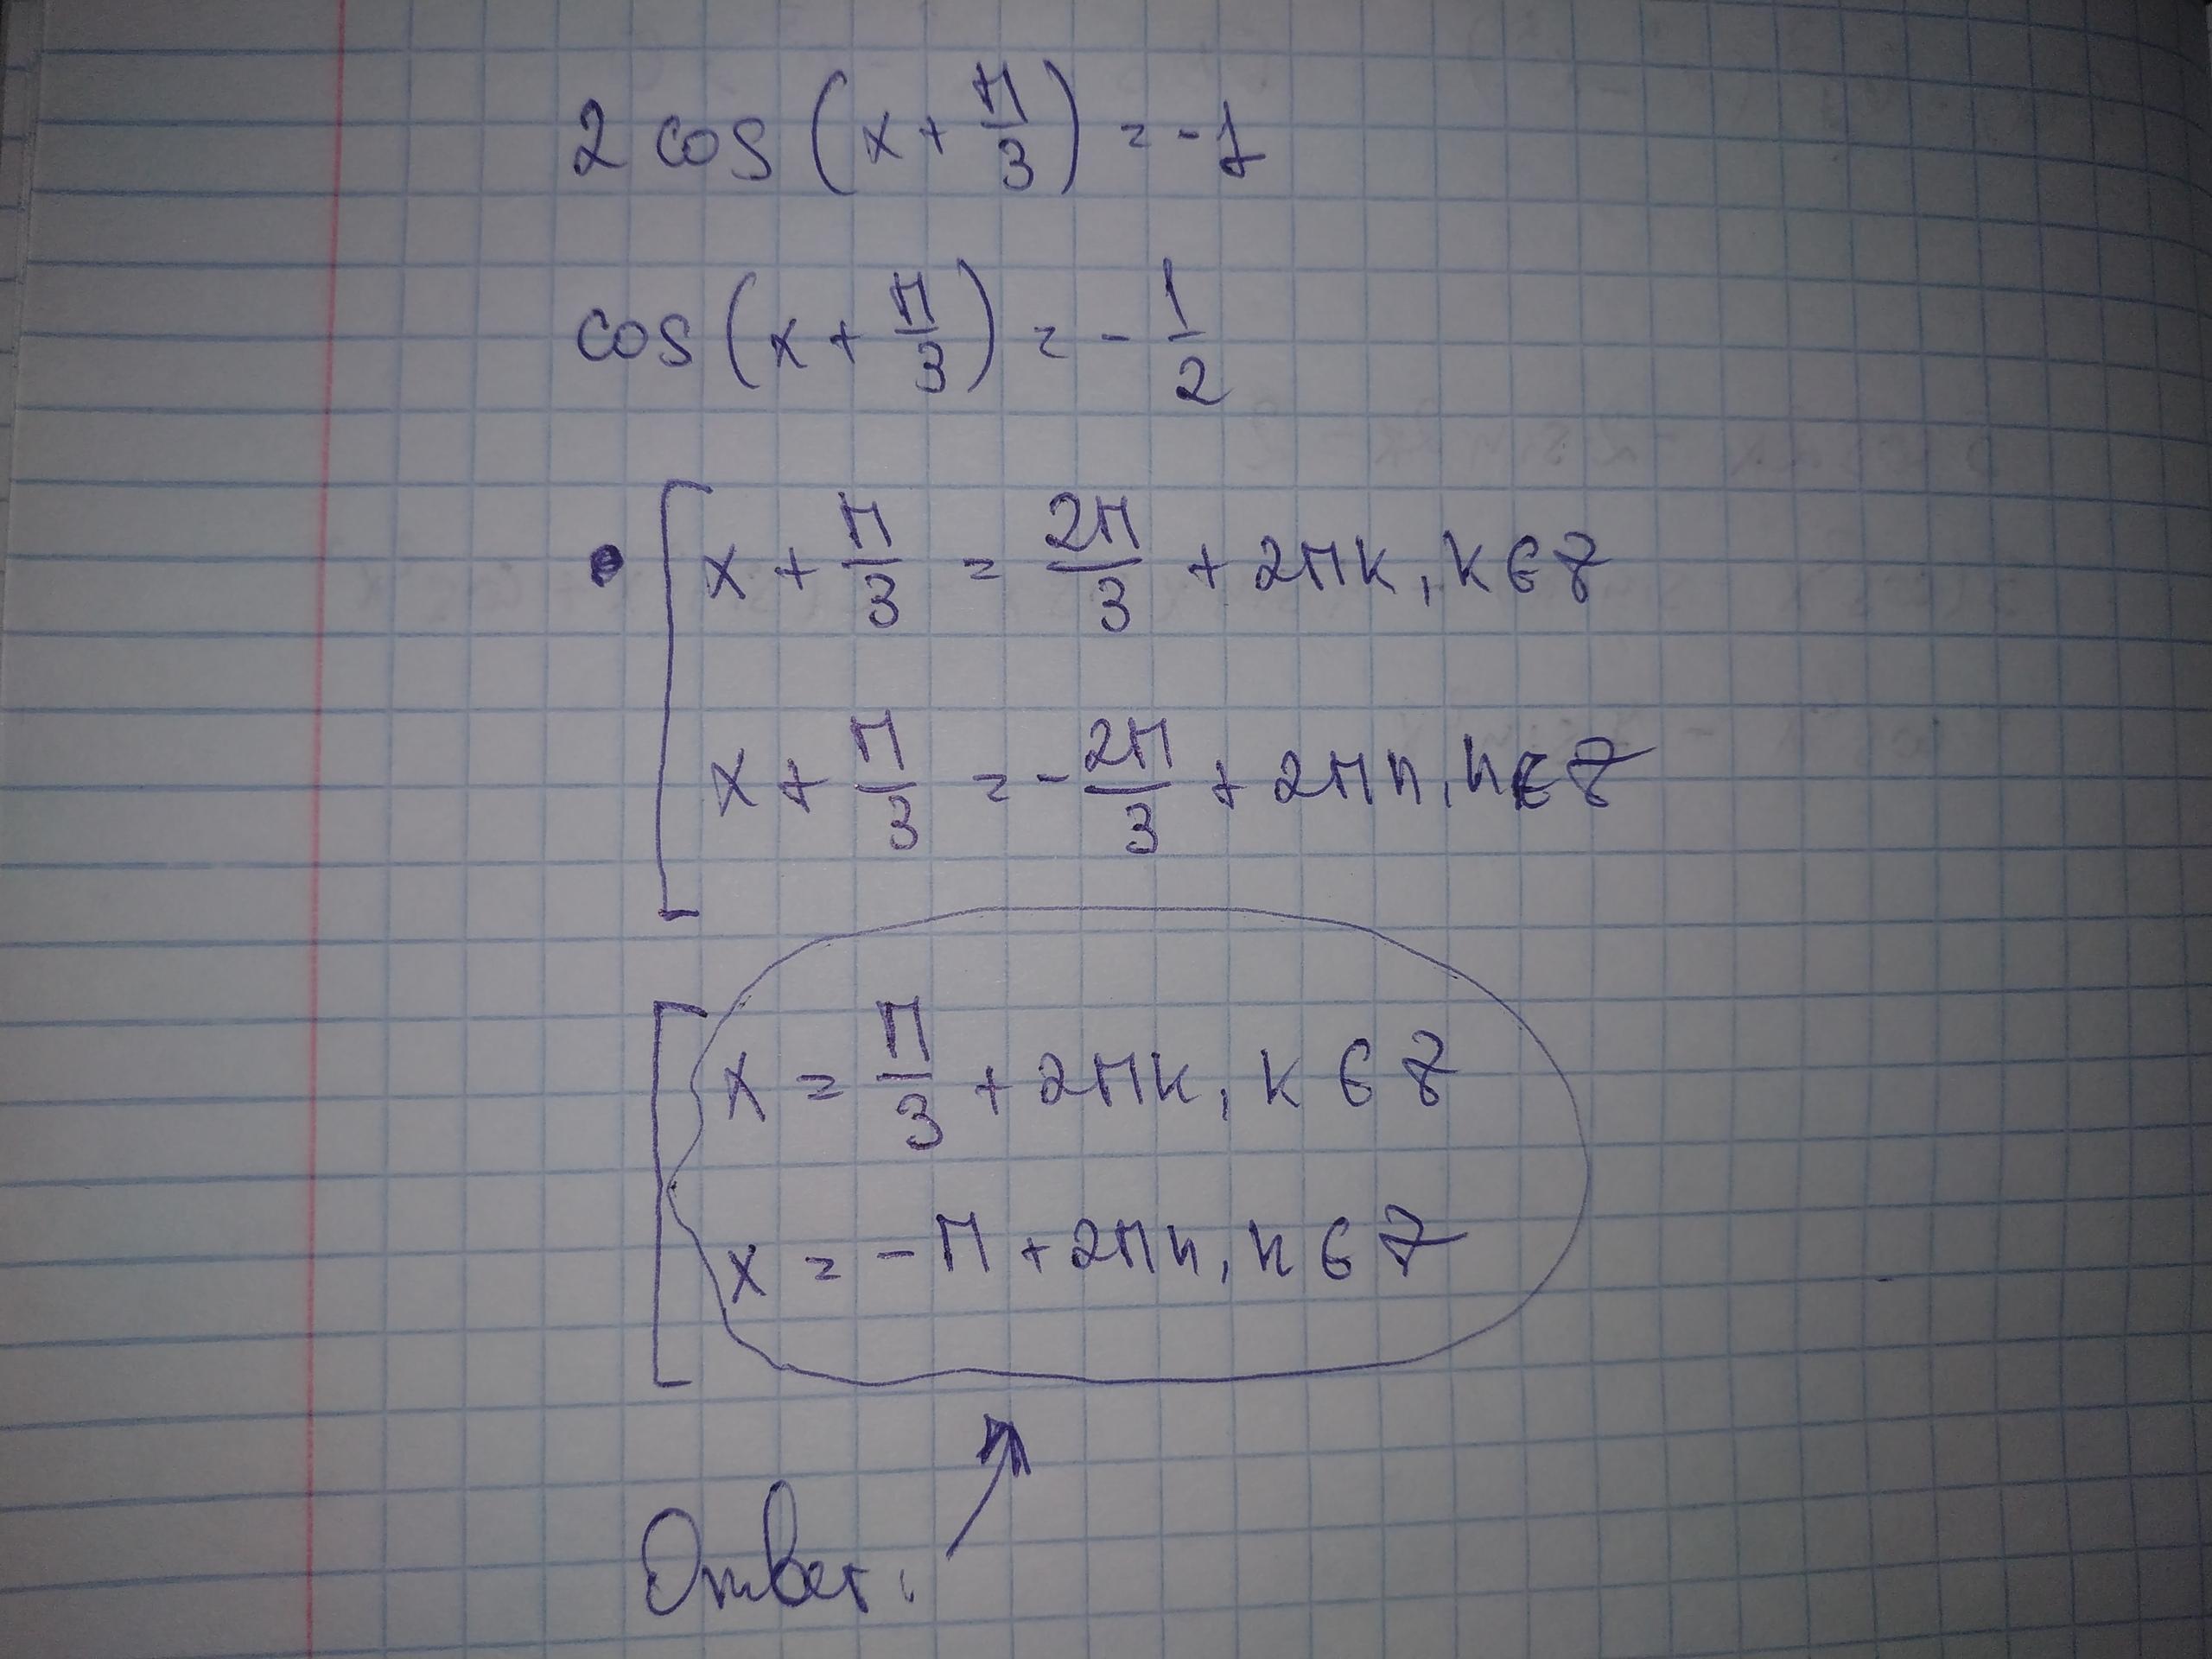 2 cos (x + π/3) = -1
cos (x + π/3) = - 1/2
[ x + π/3 = 2π/3 + 2πk, k ∈ Z
x + π/3 = - 2π/3 + 2πn, n ∈ Z
[ x = π/3 + 2πk, k ∈ Z
x = -π + 2πn, n ∈ Z
Ответ: